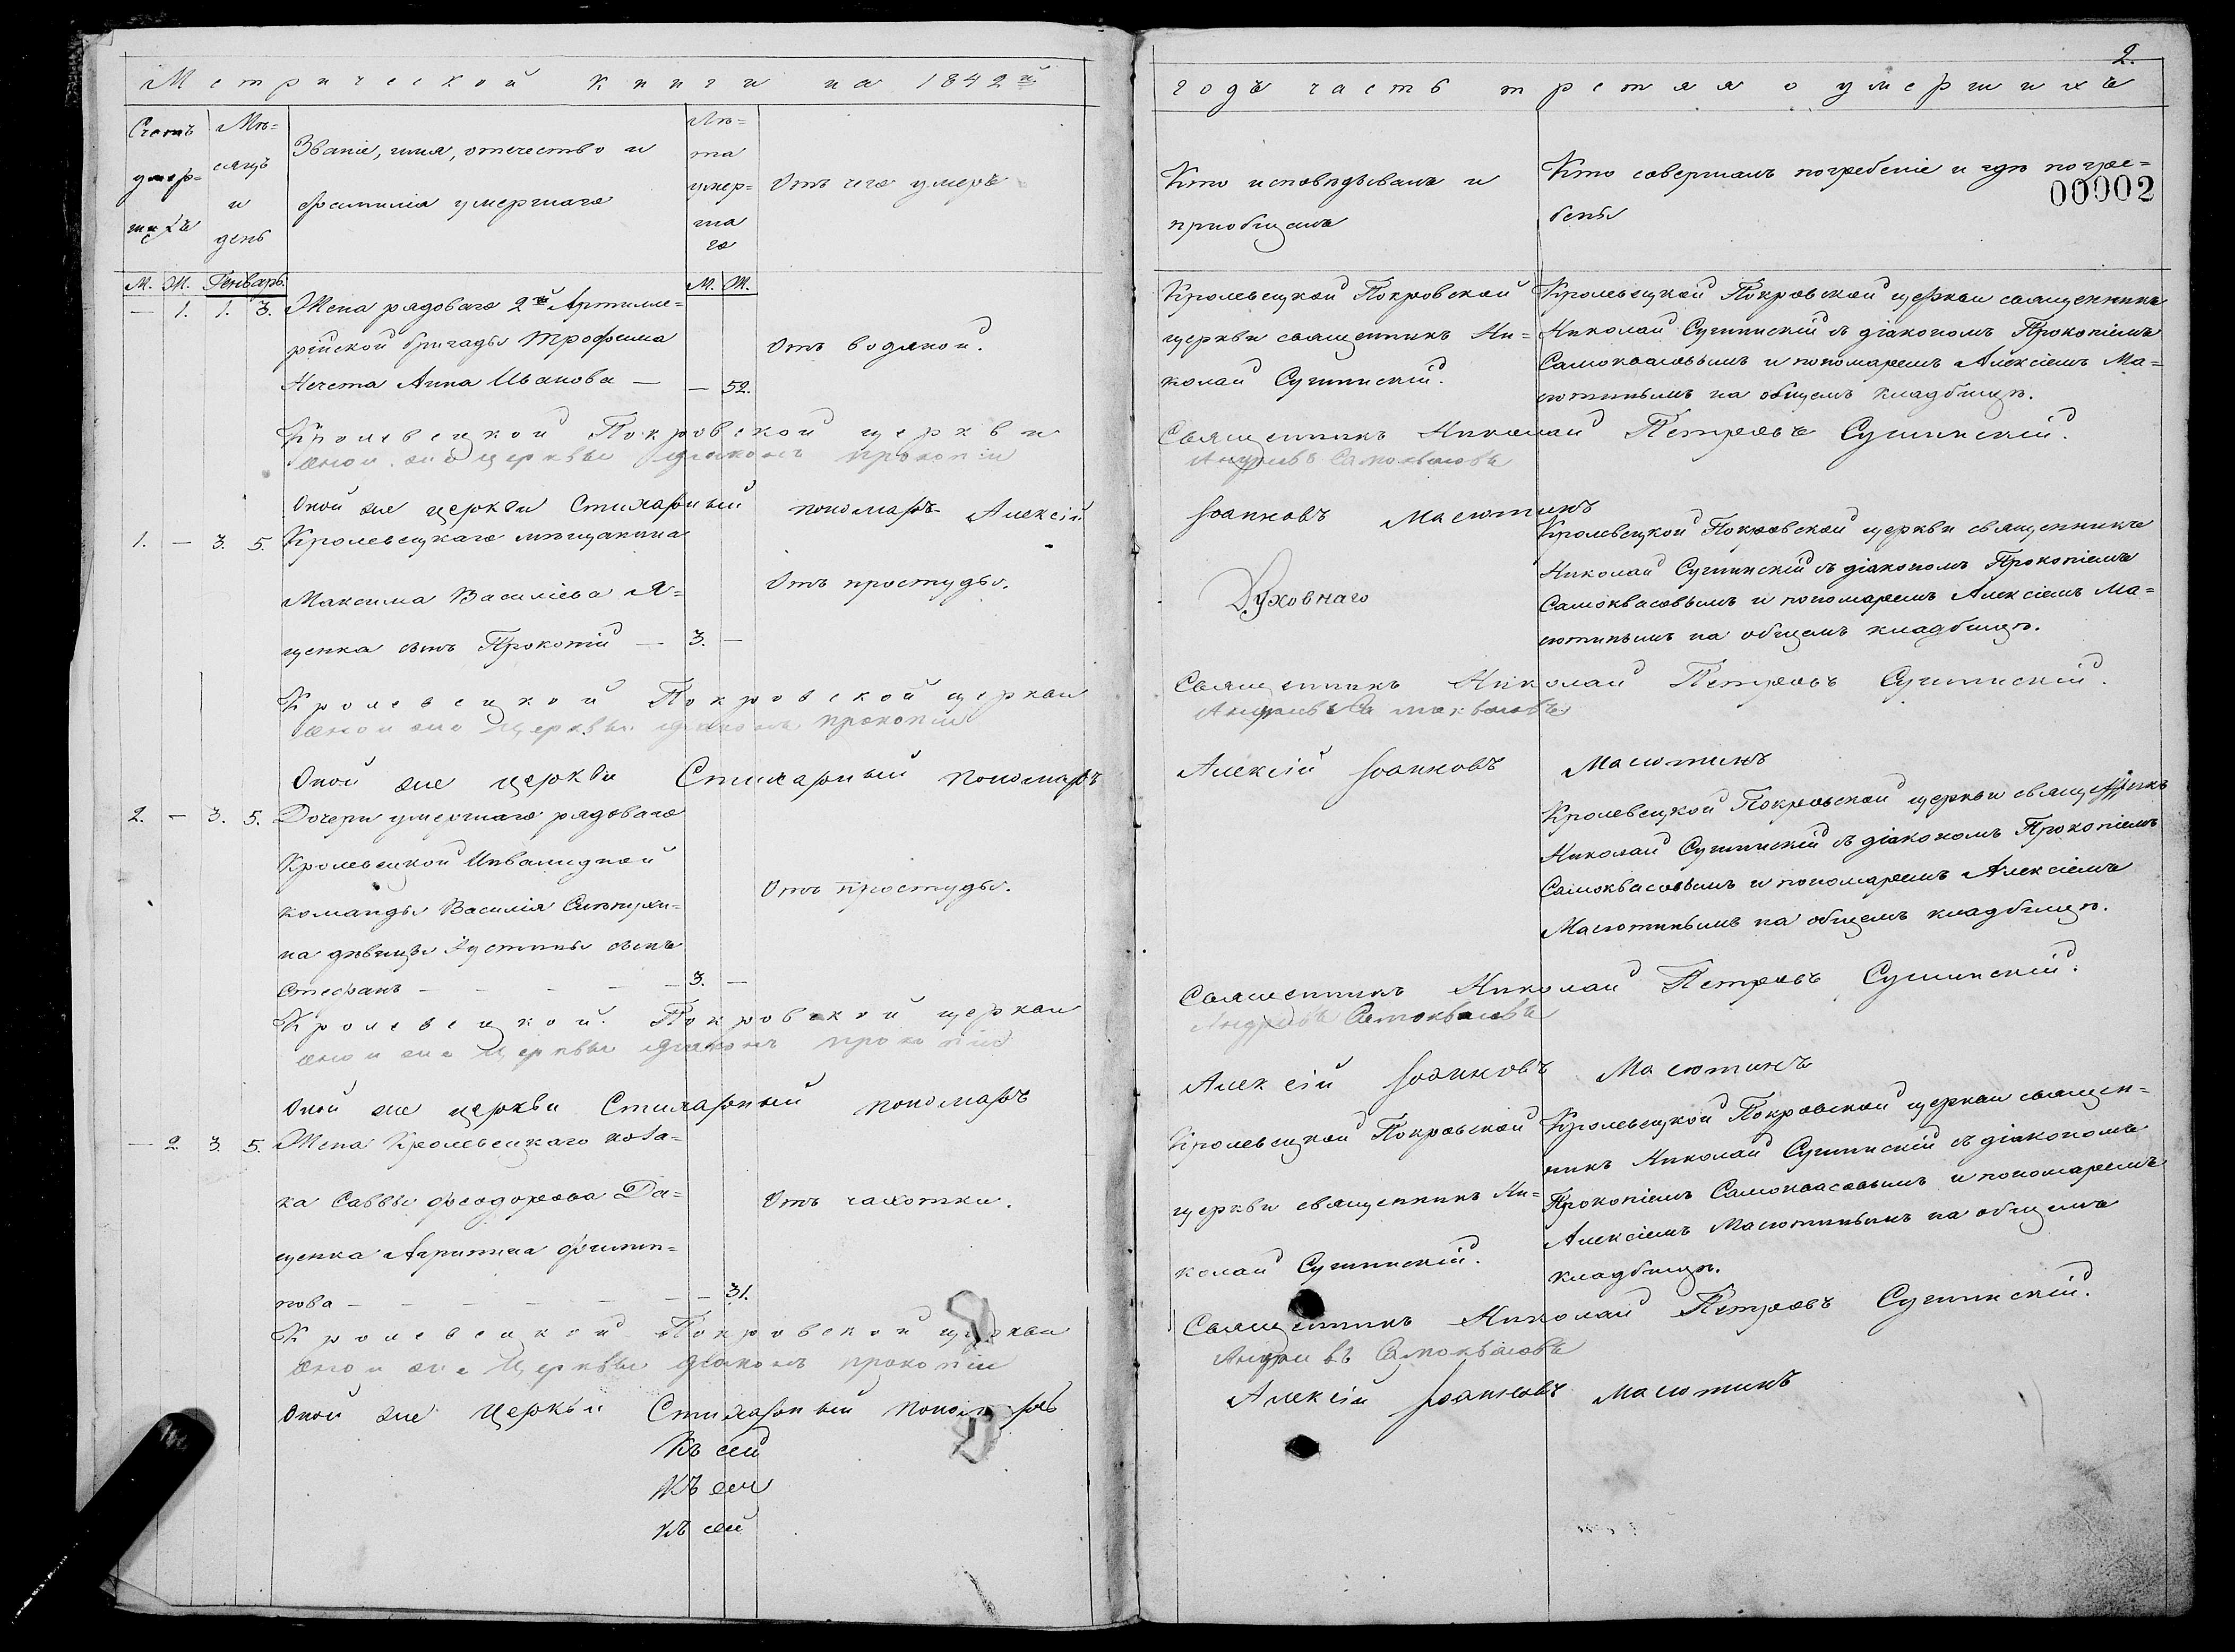 Метрической книги на 1842й
Счетъ умер- шихъ
Мѣ- сяцъ и день
Званіе, имя, отечество и
фамилія умершаго
Лѣ- та умер- ша го
Отъ чего умеръ
М. Ж. Генварь. М. Ж.
— 1. 1. 3. Жена рядоваго 2й Артилле-
рійской бригады Трофима
Отъ водяной.
Нечета Анна Иванова — — 52.
Кролевецкой Покровской церкви
оной же церквы діаконъ прокопій
Оной же церкви Стихарный пономарь Алексій
1. — 3. 5. Кролевецкаго мѣщанина
Максима Василіева Я-
Отъ простуды.
ценка сынъ Прокопій — 3. —
Кролевецкой Покровской церкви
оной же церквы діаконъ прокопій
Оной же церкви Стихарный пономарь
2. — 3. 5. Дочери умершаго рядоваго
Кролевецкой Инвалидной
команды Василія
Отъ простуды.
на дѣвицы Іустины сынъ
Стефанъ — — — — 3. —
Кролевецкой Покровской церкви
оной же церквы діаконъ прокопій
Оной же церкви Стихарный пономарь
— 2. 3. 5. Жена Кролевецкаго коза-
ка Саввы Феодорова Да-
Отъ чахотки.
ценка Агрипина Филип-
пова — — — — — — 31.
Кролевецкой Покровской церкви
оной же церквы діаконъ прокопій
Оной же церкви Стихарный пономарь
Къ сей
Къ сей
Къ сей
2.
годъ часть третяя о умершихъ
Кто исповѣдывалъ и
пріобщалъ
Кто совершалъ погребеніе и гдѣ погре-
бены
00002
Кролевецкой Покровской
церкви священникъ Ни-
колай Сушинскій.
Кролевецкой Покровской церкви священникъ
Николай Сушинскій съ діакономъ Прокопіемъ
Самоквасовымъ и пономаремъ Алексіемъ Ма-
сютинымъ на общемъ кладбищѣ.
Священникъ Николай Петровъ Сушинскій.
Андреевъ Самоквасовъ
Іоанновъ Масютинъ
Кролевецкой Покровской церкви священникъ
Николай Сушинскій съ діакономъ Прокопіемъ
Духовнаго
Самоквасовымъ и пономаремъ Алексіемъ Ма-
сютинымъ на общемъ кладбищѣ.
Священникъ Николай Петровъ Сушинскій.
Андреевъ Самоквасовъ
Алексій Іоанновъ Масютинъ
Кролевецкой Покровской церкви священникъ
Николай Сушинскій съ діакономъ Прокопіемъ
Самоквасовымъ и пономаремъ Алексіемъ
Масютинымъ на общемъ кладбищѣ.
Священникъ Николай Петровъ Сушинскій.
Андреевъ Самоквасовъ
Алексій Іоанновъ Масютинъ
Кролевецкой Покровской
церкви священникъ Ни-
колай Сушинскій.
Кролевецкой Покровской церкви священ-
никъ Николай Сушинскій съ діакономъ
Прокопіемъ Самоквасовымъ и пономаремъ
Алексіемъ Масютинымъ на общемъ
кладбищѣ.
Священникъ Николай Петровъ Сушинскій.
Андреевъ Самоквасовъ
Алексій Іоанновъ Масютинъ